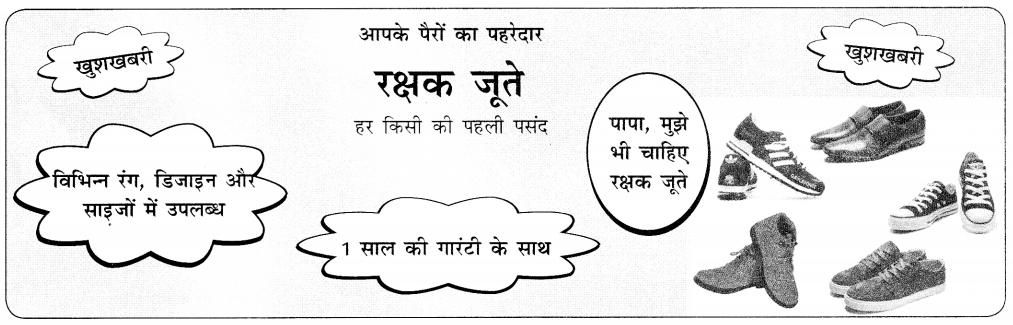 खुशखबरी
आपके पैरों का पहरेदार
रक्षक जूते
हर किसी की पहली पसंद
खुशखबरी
विभिन्न रंग, डिजाइन और
साइजों में उपलब्ध
1 साल की गारंटी के साथ
पापा, मुझे
भी चाहिए
रक्षक जूते